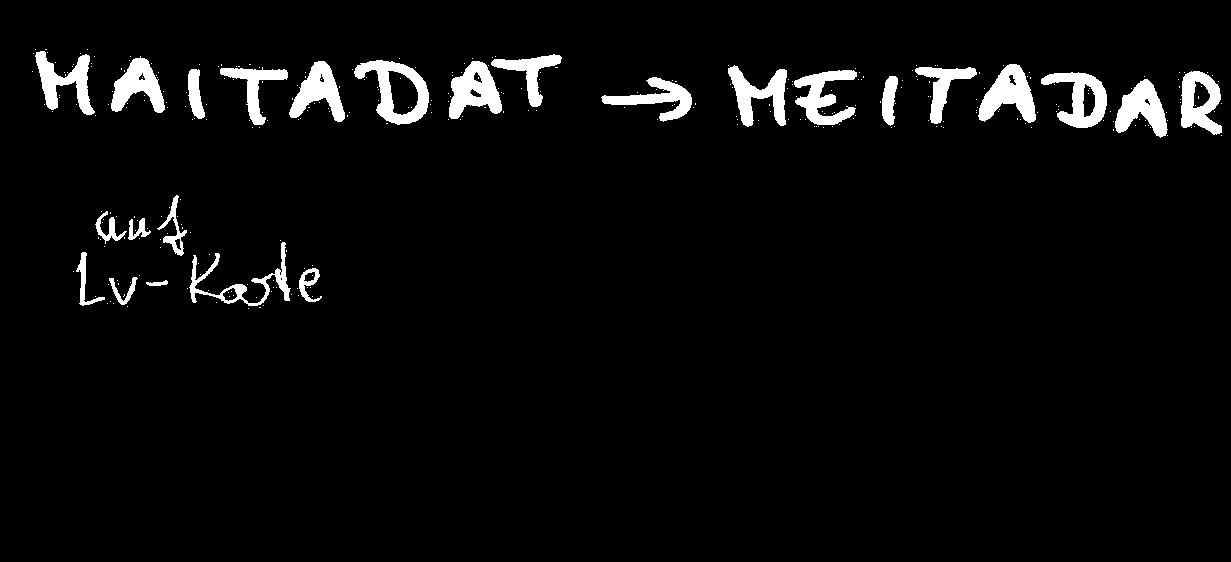 MAITADAT → MEITADAR
auf
Lv-Karte